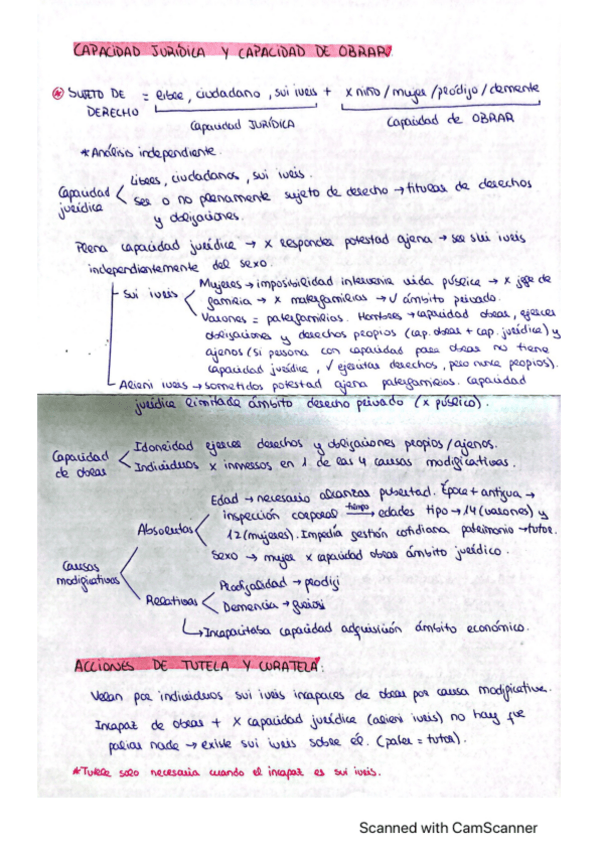 CAPACIDAD JURÍDICA Y CAPACIDAD DE OBRAR
* SUJETO DE DERECHO = libre, ciudadano, sui iuris + x niño / mujer / pródigo / demente
Capacidad JURÍDICA
Capacidad de OBRAR
* Análisis independiente.
Capacidad jurídica
Libres, ciudadanos, sui iuris.
Ser o no plenamente sujeto de derecho → titular de derechos
y obligaciones.
Plena capacidad jurídica → x responder potestad ajena → ser sui iuris
independientemente del sexo.
Sui iuris
Mujeres → imposibilidad intervenir vida pública → x jefe de
familia → x materfamilias → √ ámbito privado.
Varones = paterfamilias. Hombres → capacidad obrar, ejercer
obligaciones y derechos propios (cap. obrar + cap. jurídica) y
ajenos (si persona con capacidad para obrar no tiene
capacidad jurídica, √ ejercitar derechos, pero nunca propios).
Alieni iuris → sometidos potestad ajena paterfamilias. Capacidad
jurídica limitada ámbito derecho privado (x público).
Capacidad de obrar
Idoneidad ejercer derechos y obligaciones propios / ajenos.
Individuos x inmersos en 1 de las 4 causas modificativas.
Causas modificativas
Absolutas
Edad → necesario alcanzar pubertad. Época + antigua →
inspección corporal tiempo → edades tipo → 14 (varones) y
12 (mujeres). Impedía gestión cotidiana patrimonio → tutor.
Sexo → mujer x capacidad obrar ámbito jurídico.
Relativas
Prodigalidad → prodigi
Demencia → furiosi
→ Incapacitaba capacidad adquisición ámbito económico.
ACCIONES DE TUTELA Y CURATELA:
Velan por individuos sui iuris incapaces de obrar por causa modificativa.
Incapaz de obrar + x capacidad jurídica (alieni iuris) no hay que
paliar nada → existe sui iuris sobre él. (pater = tutor).
* Tutela solo necesaria cuando el incapaz es sui iuris.
Scanned with CamScanner